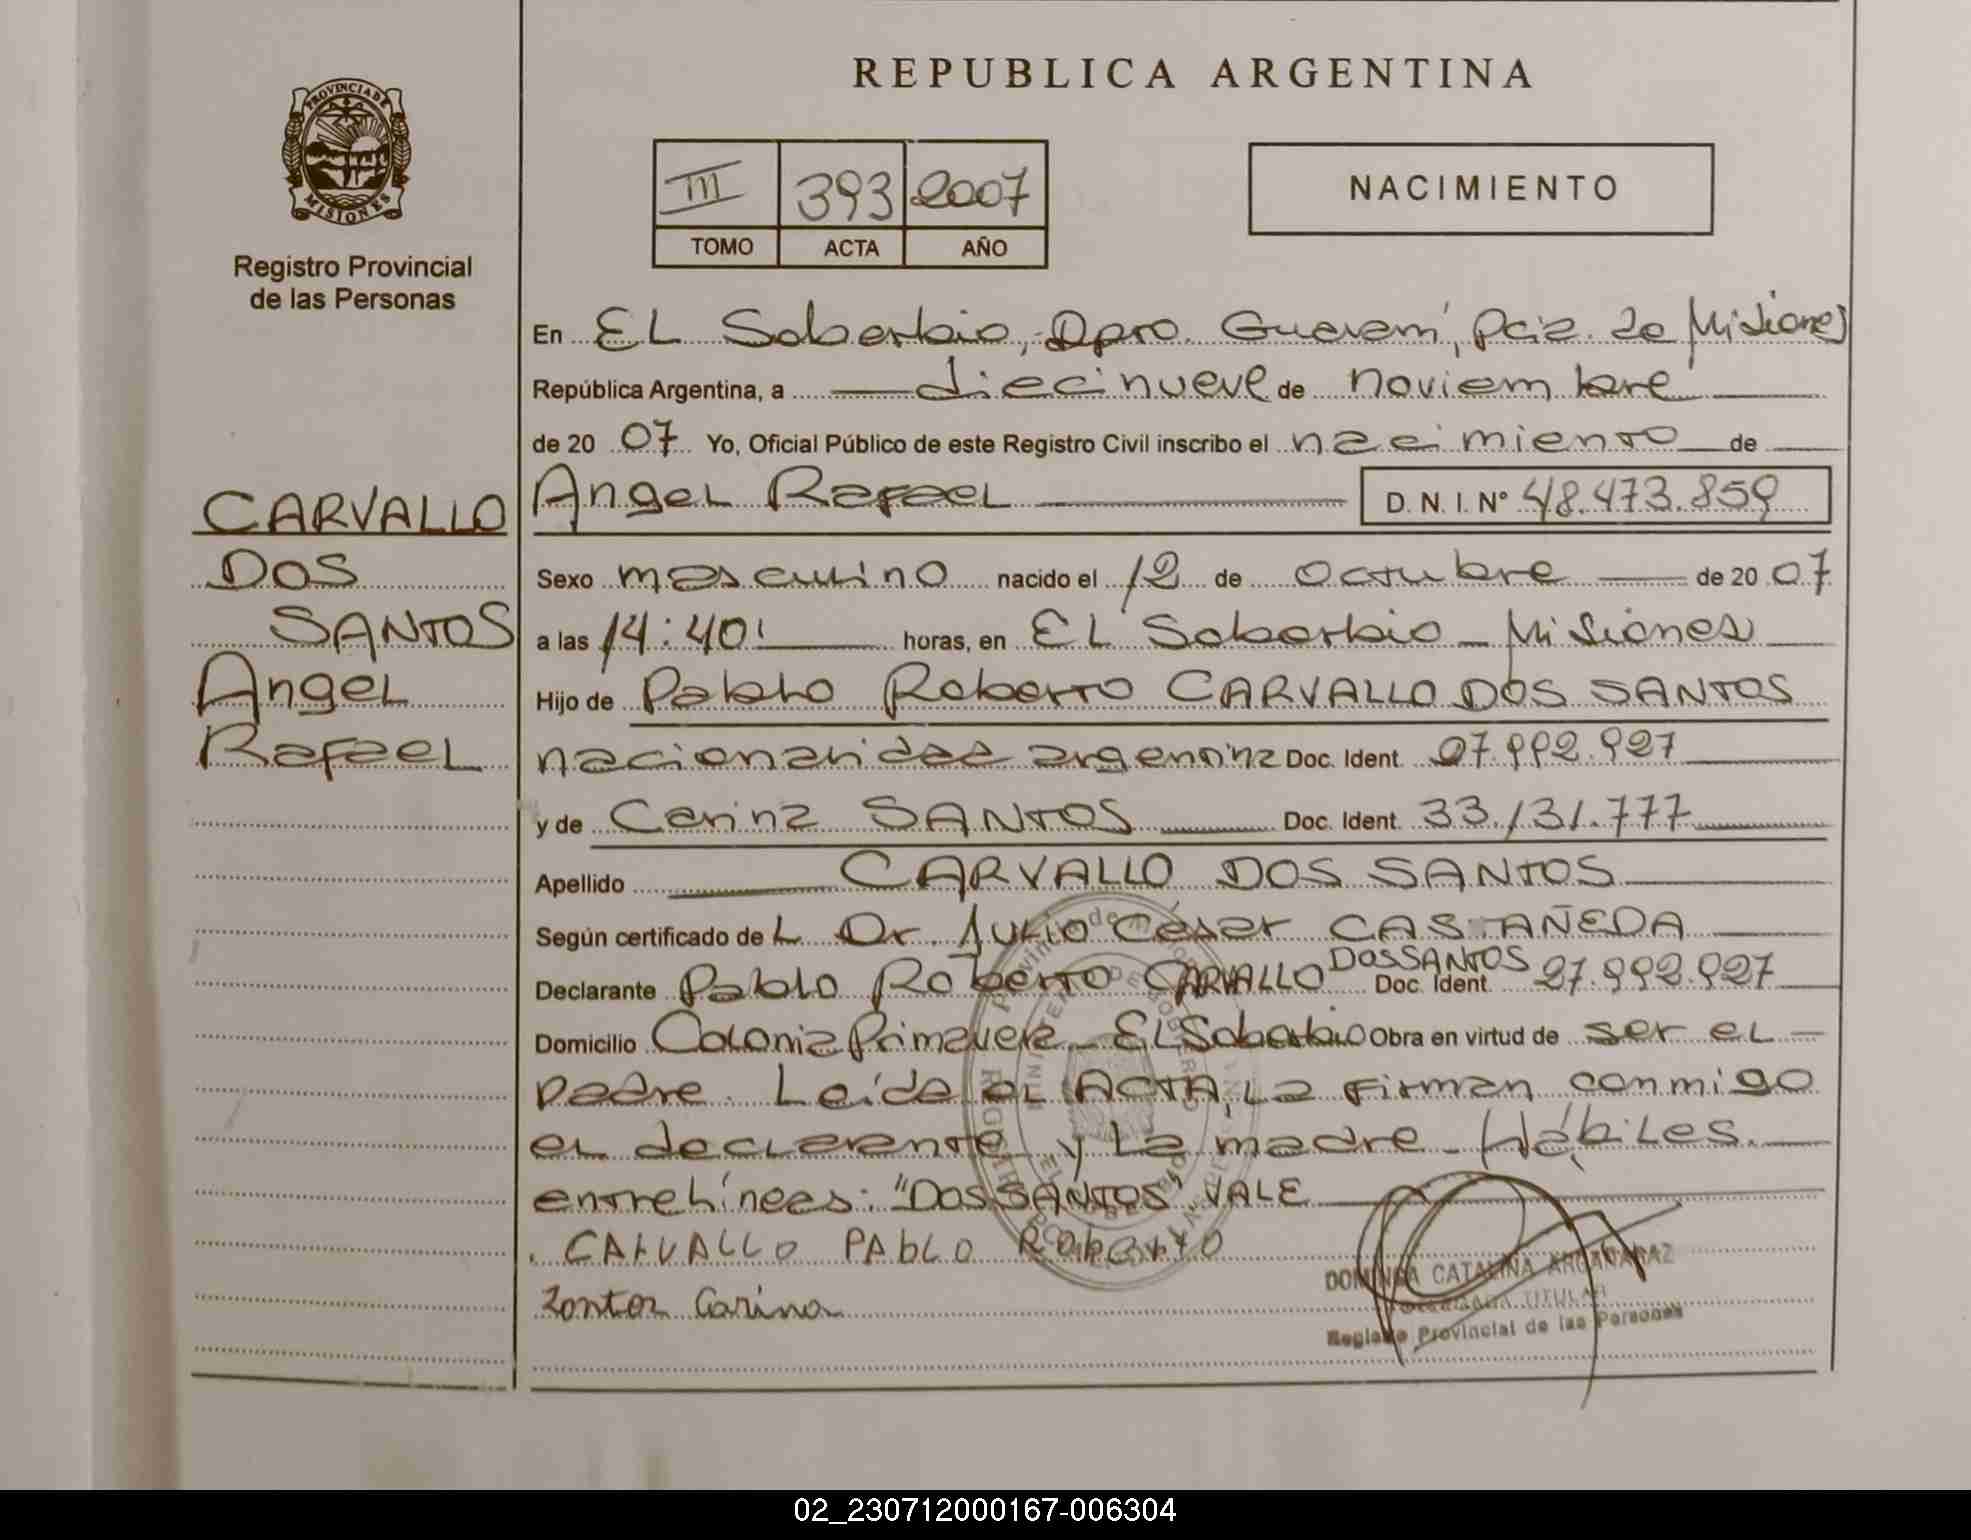 REPUBLICA ARGENTINA
PROVINCIA DE
MISIONES
Registro Provincial
de las Personas
III 393 2007
TOMO ACTA AÑO
NACIMIENTO
En EL Soberbio, Dpto. Guaraní, Pcia. de Misiones
República Argentina, a diecinueve de noviembre
de 20 07 Yo, Oficial Público de este Registro Civil inscribo el nacimiento de
Angel Rafael D. N. I. N° 48.473.859
CARVALLO
DOS
SANTOS
Angel
Rafael
Sexo masculino nacido el 12 de octubre de 20 07
a las 14:40' horas, en EL Soberbio - Misiones
Hijo de Pablo Roberto CARVALLO DOS SANTOS
nacionalidad argentina Doc. Ident. 27.992.927
y de Carina SANTOS Doc. Ident. 33.131.777
Apellido CARVALLO DOS SANTOS
Según certificado de L Dr. Julio César CASTAÑEDA
Declarante Pablo Roberto CARVALLO DOS SANTOS Doc. Ident. 27.992.927
Domicilio Colonia Primavera - El Soberbio Obra en virtud de ser el -
padre. Leída el ACTA, la firman conmigo
el declarante y la madre - Hábiles.
entrelíneas: "DOS SANTOS" VALE
CARVALLO PABLO Roberto
Santos Carina
DOMINGA CATALINA ARGAÑARAZ
TITULAR
Registro Provincial de las Personas
02_230712000167-006304